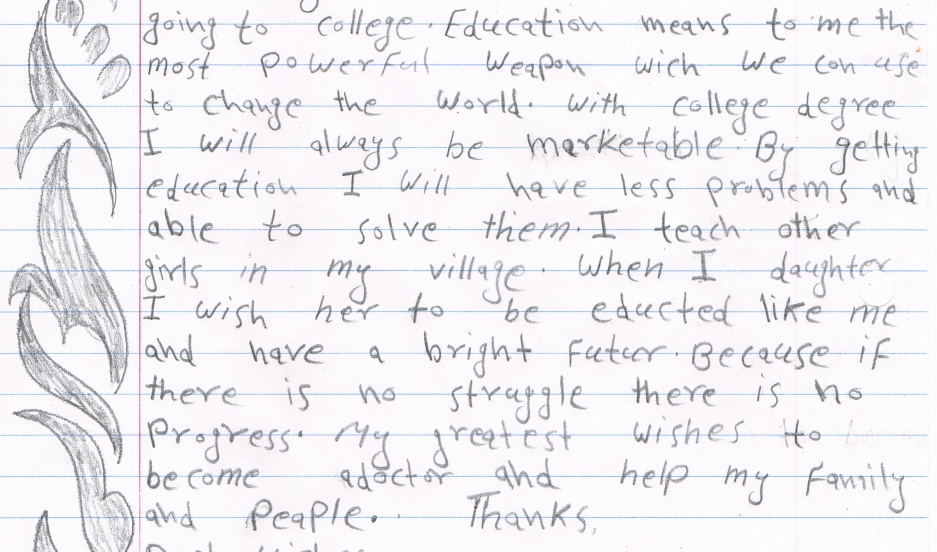 going to college. Education means to me the
most powerful weapon wich we can use
to change the world. with college degree
I will always be marketable. By getting
education I will have less problems and
able to solve them. I teach other
girls in my village. When I daughter
I wish her to be educted like me
and have a bright Futur. Because if
there is no struggle there is no
Progress. My greatest wishes to
become adoctor and help my Family
and Peaple. Thanks,